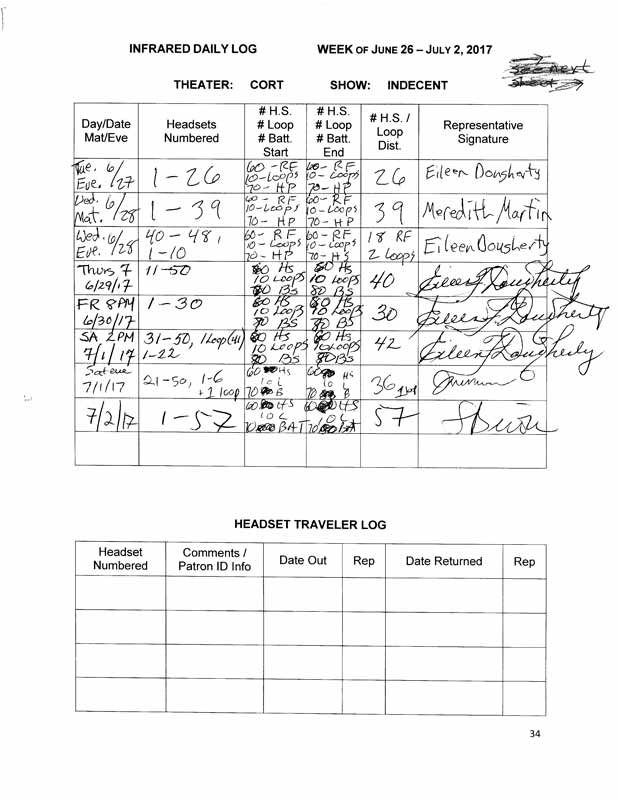 INFRARED DAILY LOG WEEK OF JUNE 26 – JULY 2, 2017
see next
sheet
THEATER: CORT SHOW: INDECENT
Day/Date
Mat/Eve
Headsets
Numbered
# H.S.
# Loop
# Batt.
Start
# H.S.
# Loop
# Batt.
End
# H.S. /
Loop
Dist.
Representative
Signature
Tue. 6/27
Eve.
1 - 26
60 - RF
10 - Loops
70 - HP
60 - RF
10 - Loops
70 - HP
26
Eileen Dougherty
Wed. 6/28
Mat.
1 - 39
60 - RF
10 - Loops
70 - HP
60 - RF
10 - Loops
70 - HP
39
Meredith Martin
Wed. 6/28
Eve.
40 - 48,
1 - 10
60 - RF
10 - Loops
70 - HP
60 - RF
10 - Loops
70 - HP
18 RF
2 Loops
Eileen Dougherty
Thurs 7
6/29/17
11-50
HS
10 Loops
BS
HS
10 Loops
BS
40
Eileen F. Dougherty
FR 8PM
6/30/17
1 - 30
HS
10 Loops
BS
HS
10 Loops
BS
30
Eileen F. Dougherty
SA 2PM
7/1/17
31-50, 1 Loop (41)
1-22
HS
10 Loops
BS
HS
10 Loops
BS
42
Eileen F. Dougherty
Sat eve
7/1/17
21-50, 1-6
+ 1 loop
60 HS
10 L
70 B
60 HS
10 L
70 B
36
7/2/17
1 - 57
60 HS
10 L
70 BAT
60 HS
10 L
70 BAT
57
HEADSET TRAVELER LOG
Headset
Numbered
Comments /
Patron ID Info
Date Out
Rep
Date Returned
Rep
34